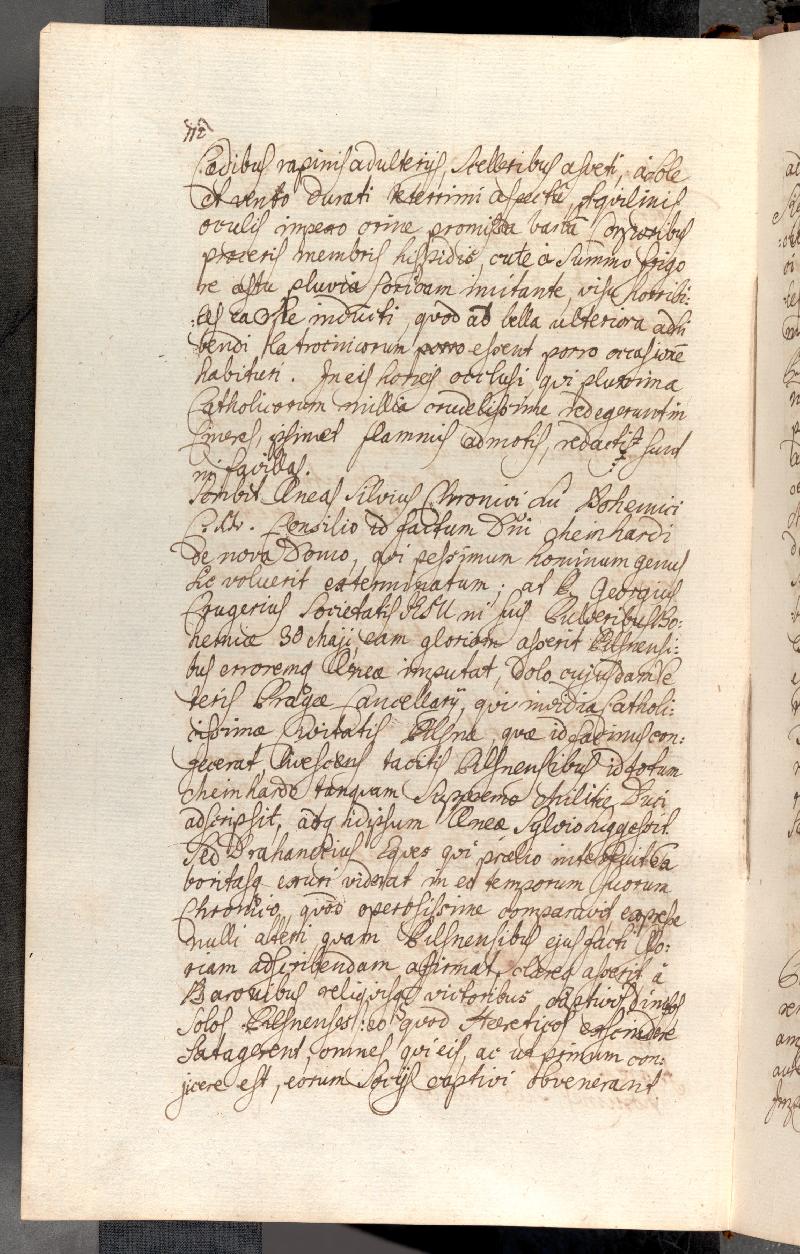 112
Cædibus rapinis adulterijs, scelleribus asveti, à sole
et vento durati teterrimi aspectu, Aqvilinis
oculis impexo crine promissa barba corporibus
proceris membris hispidis, cute à summo frigo
re æstu pluvia corium imitante, visu horribi:
les ea spe inducti, quod ad bella ulteriora adhi
bendi Latrocinicorum porro essent porro occasionē
habituri. In eis horreis occlusi qvi plurima
Catholicorum millia crudelissime redegerunt in
Cineres, ipsimet flammis admotis, redacti sunt
in favillas.
Scribit Æneas Silvius Chronici sui Bohemici
Consilio id factum Dni Meinhardi
de nova Domo, qvi pessimum hominum genus
sic voluerit exterminatum; at P. Georgius
Crugerius Societatis JESU in suis Pulveribus Bo:
hemiæ 30 Maji, eam gloriam asserit Pilsnensi:
bus erroremq Æneæ imputat, Dolo cujusdam Ve
teris Pragæ Cancellarij, qvi invidia Catholi:
cissimæ Civitatis Pilsnæ, quæ id facinus con:
gecerat livescens tacitis Pilsnensibus id totum
Meinhardo tanquam Supremo Militiæ Duci
adscripsit, atq idipsum Æneæ Sylvio suggessit.
Sed Drahanecius Eques qvi prælio interfuit Ta
boritasq exuri viderat in eo temporum suorum
Chronico, quod operosissime comparavit expresse
nulli alteri quam Pilsnensibus ejus facti Glo:
riam adscribendam affirmat, clareq asserit à
Baronibus reliqvisq victoribus captivos dimissos
Solos Pilsnenses: eo quod Hæreticos exscindere
Satagerent, omnes qvi eis, ac ut primum con:
jicere est, eorum Socijs captivi obvenerant